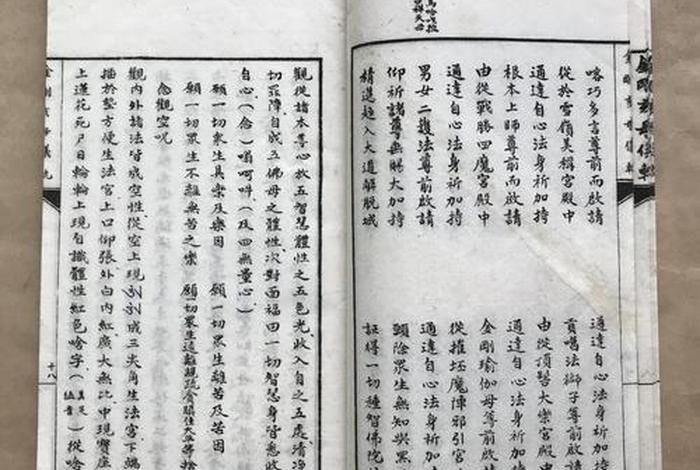 喀巧多言尊前而啟請
通達自心法身加
從於雪嶺美楫宮殿中
貢噶法獅子尊前啟
通達自心法身祈加持
由從頂髻大樂宮殿中
根本上師尊前啟請
通達自心法身祈加
由從戰勝四魔宮殿中
金剛瑜伽母尊前啟
通達自心法身祈加持
從摧坯魔陣邪引宮
男女二護法尊前啟請
通達自心法身祈加
仰祈諸尊無賜大加持
願除眾生無知與黑
精進趣入大道解脫城
証得一切種智佛
觀從諸本尊心放五智慧體性之五色光收入自之五處清淨
切罪障自成五佛母之體性次對面福田一切智慧身皆悉收
自心（念）嗡啊吽（及四無量心）
願一切眾生具樂及樂因 願一切眾生離苦及苦因
願一切眾生不離無苦之樂 願一切眾生遠離親疏貪瞋住大平等捨
念觀空咒
觀內外諸法皆成空性從空上現 成三尖角生法宮下端
插於墊方便生法宮上口仰張外白內紅廣大無比中現寶座
上蓮花死尸日輪輪上現自識體性紅色唅字（ ）從唅
十八